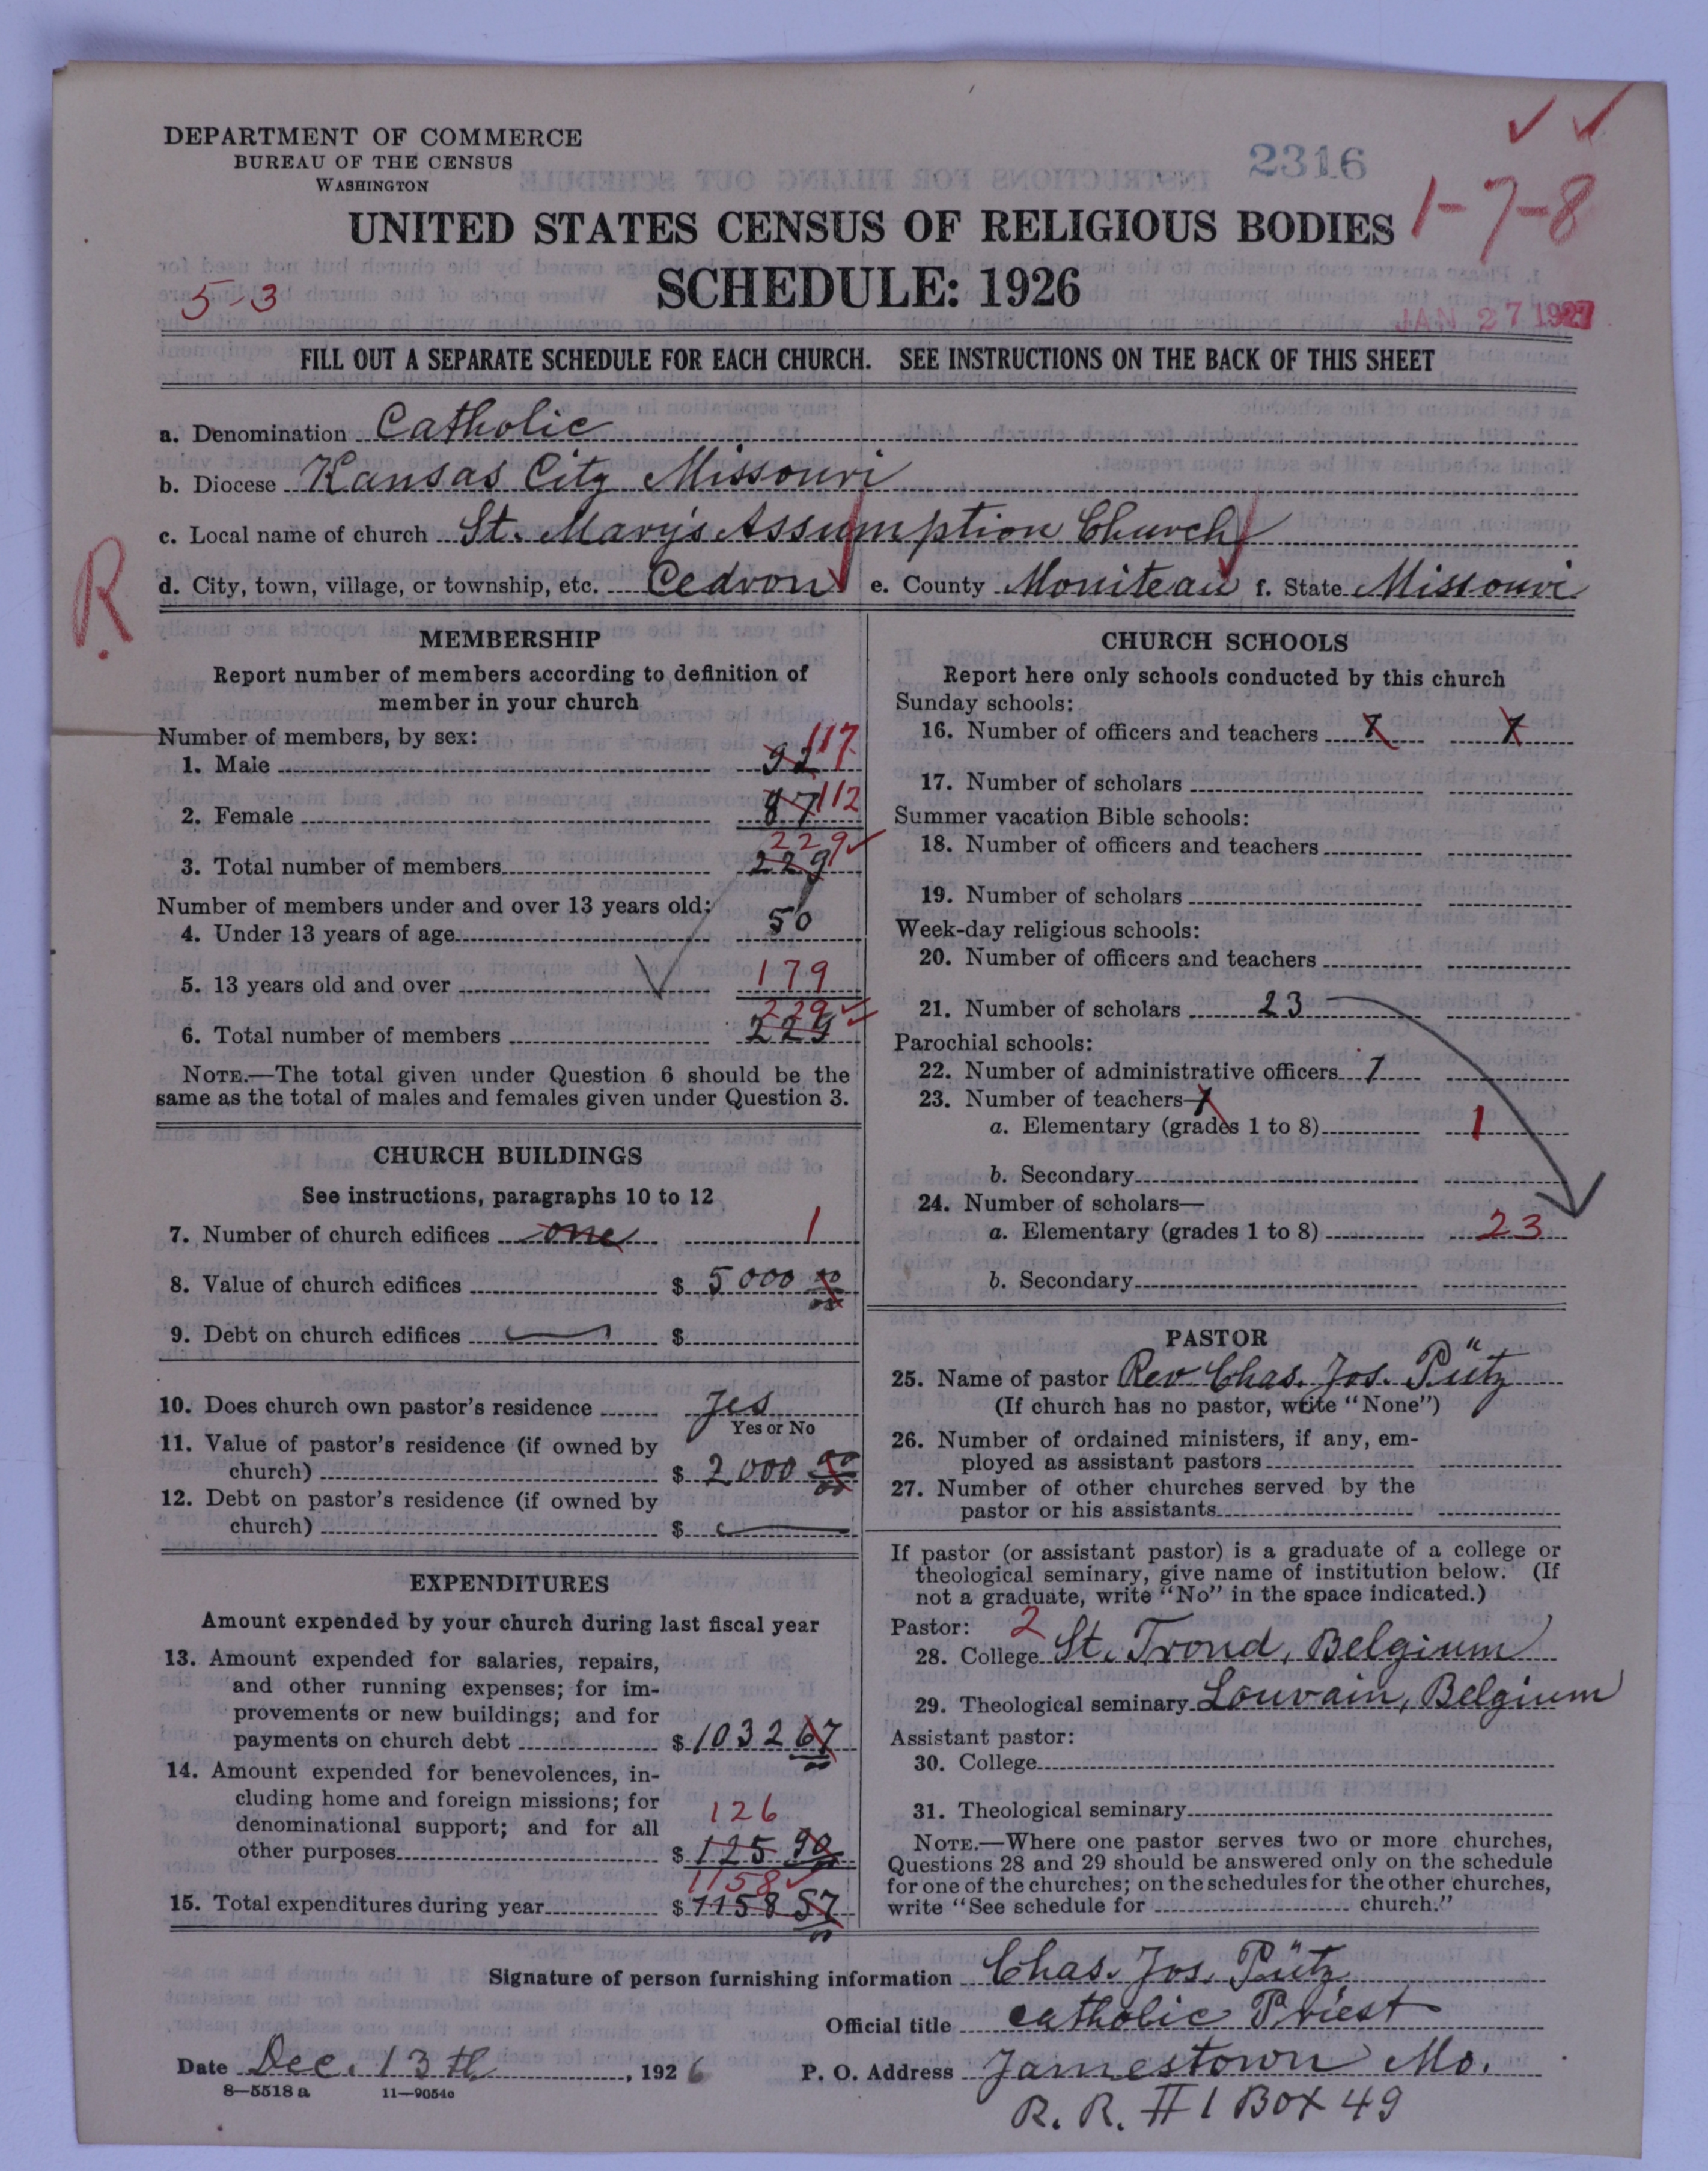 DEPARTMENT OF COMMERCE
BUREAU OF THE CENSUS
WASHINGTON
2316
UNITED STATES CENSUS OF RELIGIOUS BODIES
1-7-8
SCHEDULE: 1926
5-3
JAN 27 1927
FILL OUT A SEPARATE SCHEDULE FOR EACH CHURCH. SEE INSTRUCTIONS ON THE BACK OF THIS SHEET
a. Denomination Catholic
b. Diocese Kansas City Missouri
c. Local name of church St. Mary's Assumption Church
R.
d. City, town, village, or township, etc. Cedron e. County Moniteau f. State Missouri
MEMBERSHIP
Report number of members according to definition of
member in your church
Number of members, by sex:
1. Male 92 117
2. Female 87 112
229
3. Total number of members 229
Number of members under and over 13 years old:
4. Under 13 years of age 50
5. 13 years old and over 179
229
6. Total number of members 229
NOTE.—The total given under Question 6 should be the
same as the total of males and females given under Question 3.
CHURCH BUILDINGS
See instructions, paragraphs 10 to 12
7. Number of church edifices one 1
8. Value of church edifices $ 5000 00
9. Debt on church edifices $
10. Does church own pastor's residence Yes
Yes or No
11. Value of pastor's residence (if owned by
church) $ 2000 00
12. Debt on pastor's residence (if owned by
church) $
EXPENDITURES
Amount expended by your church during last fiscal year
13. Amount expended for salaries, repairs,
and other running expenses; for im-
provements or new buildings; and for
payments on church debt $ 1032 67
14. Amount expended for benevolences, in-
cluding home and foreign missions; for
denominational support; and for all
126
other purposes $ 125 90
1158
15. Total expenditures during year $ 1158 57
CHURCH SCHOOLS
Report here only schools conducted by this church
Sunday schools:
16. Number of officers and teachers
17. Number of scholars
Summer vacation Bible schools:
18. Number of officers and teachers
19. Number of scholars
Week-day religious schools:
20. Number of officers and teachers
21. Number of scholars 23
Parochial schools:
22. Number of administrative officers 1
23. Number of teachers— 1
a. Elementary (grades 1 to 8) 1
b. Secondary
24. Number of scholars—
a. Elementary (grades 1 to 8) 23
b. Secondary
PASTOR
25. Name of pastor Rev Chas. Jos. Pütz
(If church has no pastor, write "None")
26. Number of ordained ministers, if any, em-
ployed as assistant pastors
27. Number of other churches served by the
pastor or his assistants
If pastor (or assistant pastor) is a graduate of a college or
theological seminary, give name of institution below. (If
not a graduate, write "No" in the space indicated.)
Pastor: 2
28. College St. Trond, Belgium
29. Theological seminary Louvain, Belgium
Assistant pastor:
30. College
31. Theological seminary
NOTE.—Where one pastor serves two or more churches,
Questions 28 and 29 should be answered only on the schedule
for one of the churches; on the schedules for the other churches,
write "See schedule for church."
Signature of person furnishing information Chas. Jos. Pütz
Official title catholic Priest
Date Dec. 13th, 1926 P. O. Address Jamestown Mo.
8—5518 a 11—9054c
R. R. #1 Box 49